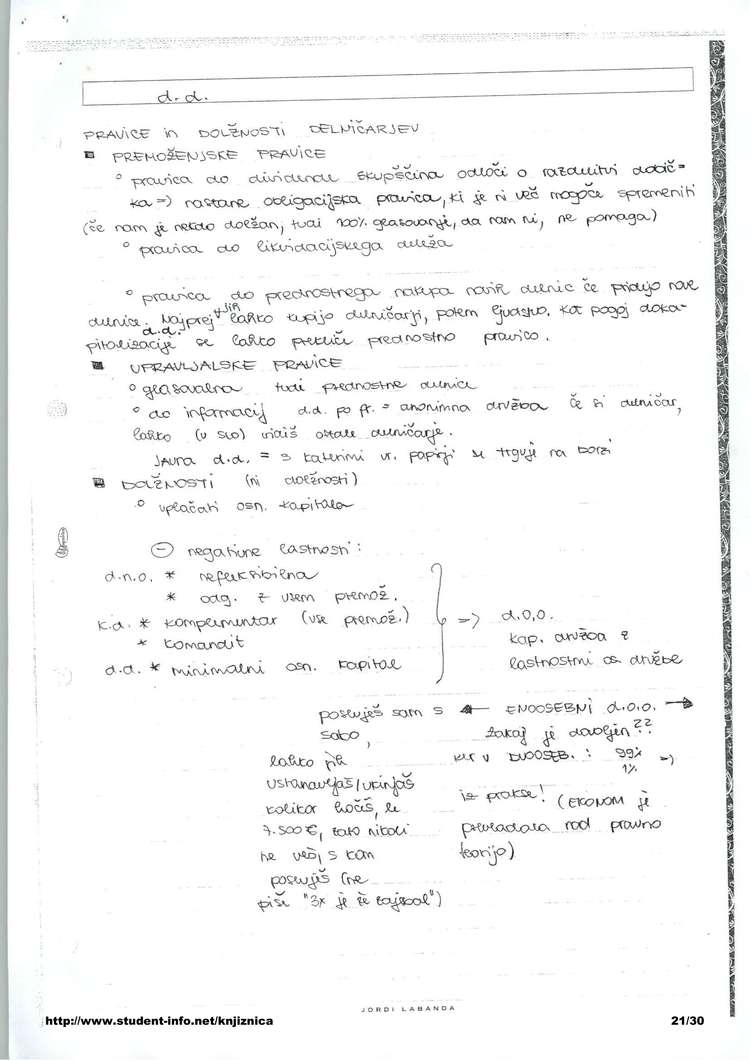 d.d.
PRAVICE in DOLŽNOSTI DELNIČARJEV
PREMOŽENJSKE PRAVICE
° pravica do dividende skupščina odloči o razdelitvi dobič-
ka => nastane obligacijska pravica, ki je ni več mogoče spremeniti
(če nam je nekdo dolžan, tudi 100% glasovanje, da nam ni, ne pomaga)
° pravica do likvidacijskega deleža
° pravica do prednostnega nakupa novih delnic če pridejo nove
delnice. Najprej jih lahko kupijo delničarji, potem ljudstvo. Kot pogoj doka-
d.d.
pitalizacije se lahko prekliče prednostno pravico.
UPRAVLJALSKE PRAVICE
° glasovalna tudi prednostne delnice
° do informacij d.d. po fr. = anonimna družba če si delničar,
lahko (v SLO) vidiš ostale delničarje.
JAVNA d.d. = s katerimi vr. papirji se trguje na borzi
DOLŽNOSTI (ni dolžnosti)
° vplačati osn. kapitala
⊖ negativne lastnosti:
d.n.o. * nefleksibilna
* odg. z vsem premož.
k.d. * komplementar (vse premož.)
* komandit
d.d. * minimalni osn. kapital
=> d.o.o.
kap. družba z
lastnostmi os. družbe
posluješ sam s ← ENOOSEBNI d.o.o. →
sabo,
lahko jih
ustanavljaš/ukinjaš
kolikor hočeš, le
7.500 €, zato nikoli
ne veš, s kom
posluješ (ne
piše "3x je že zajebal")
zakaj je dovoljen??
ker v DVOOSEB. : 99% =>
1%
iz prakse! (EKONOM je
prevladala nad pravno
teorijo)
JORDI LABANDA
http://www.student-info.net/knjiznica
21/30